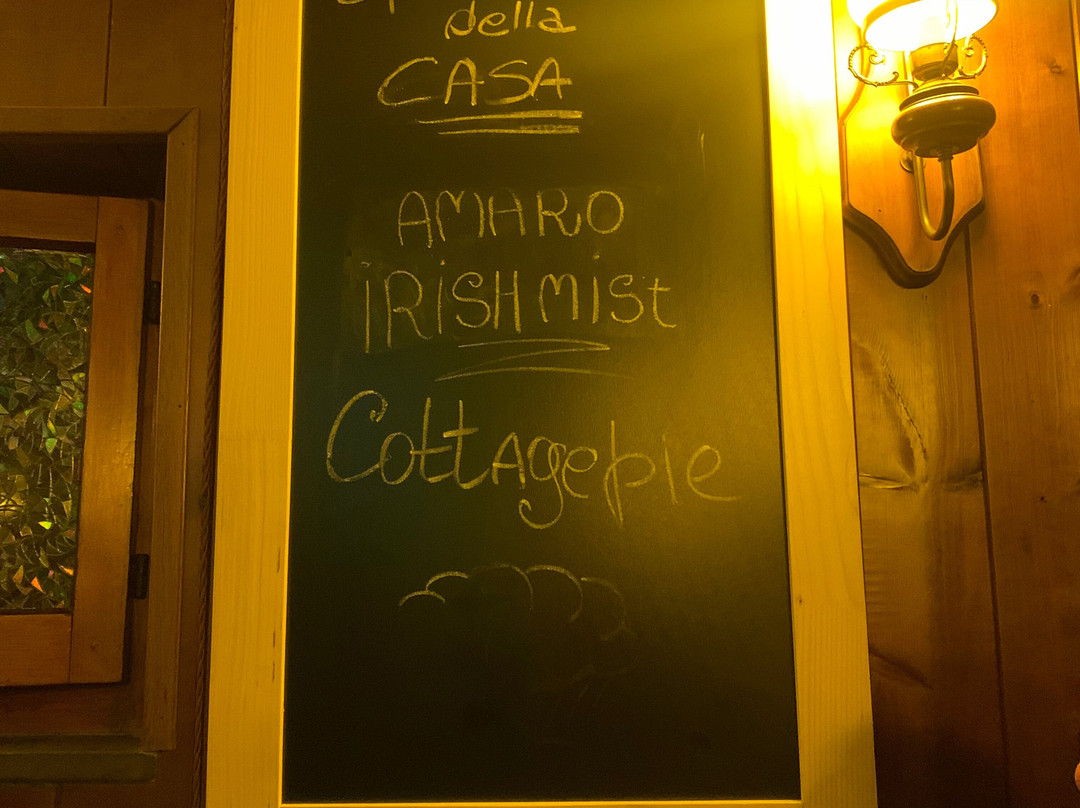 della
CASA
AMARO
iRiSH MiSt
Cottage pie